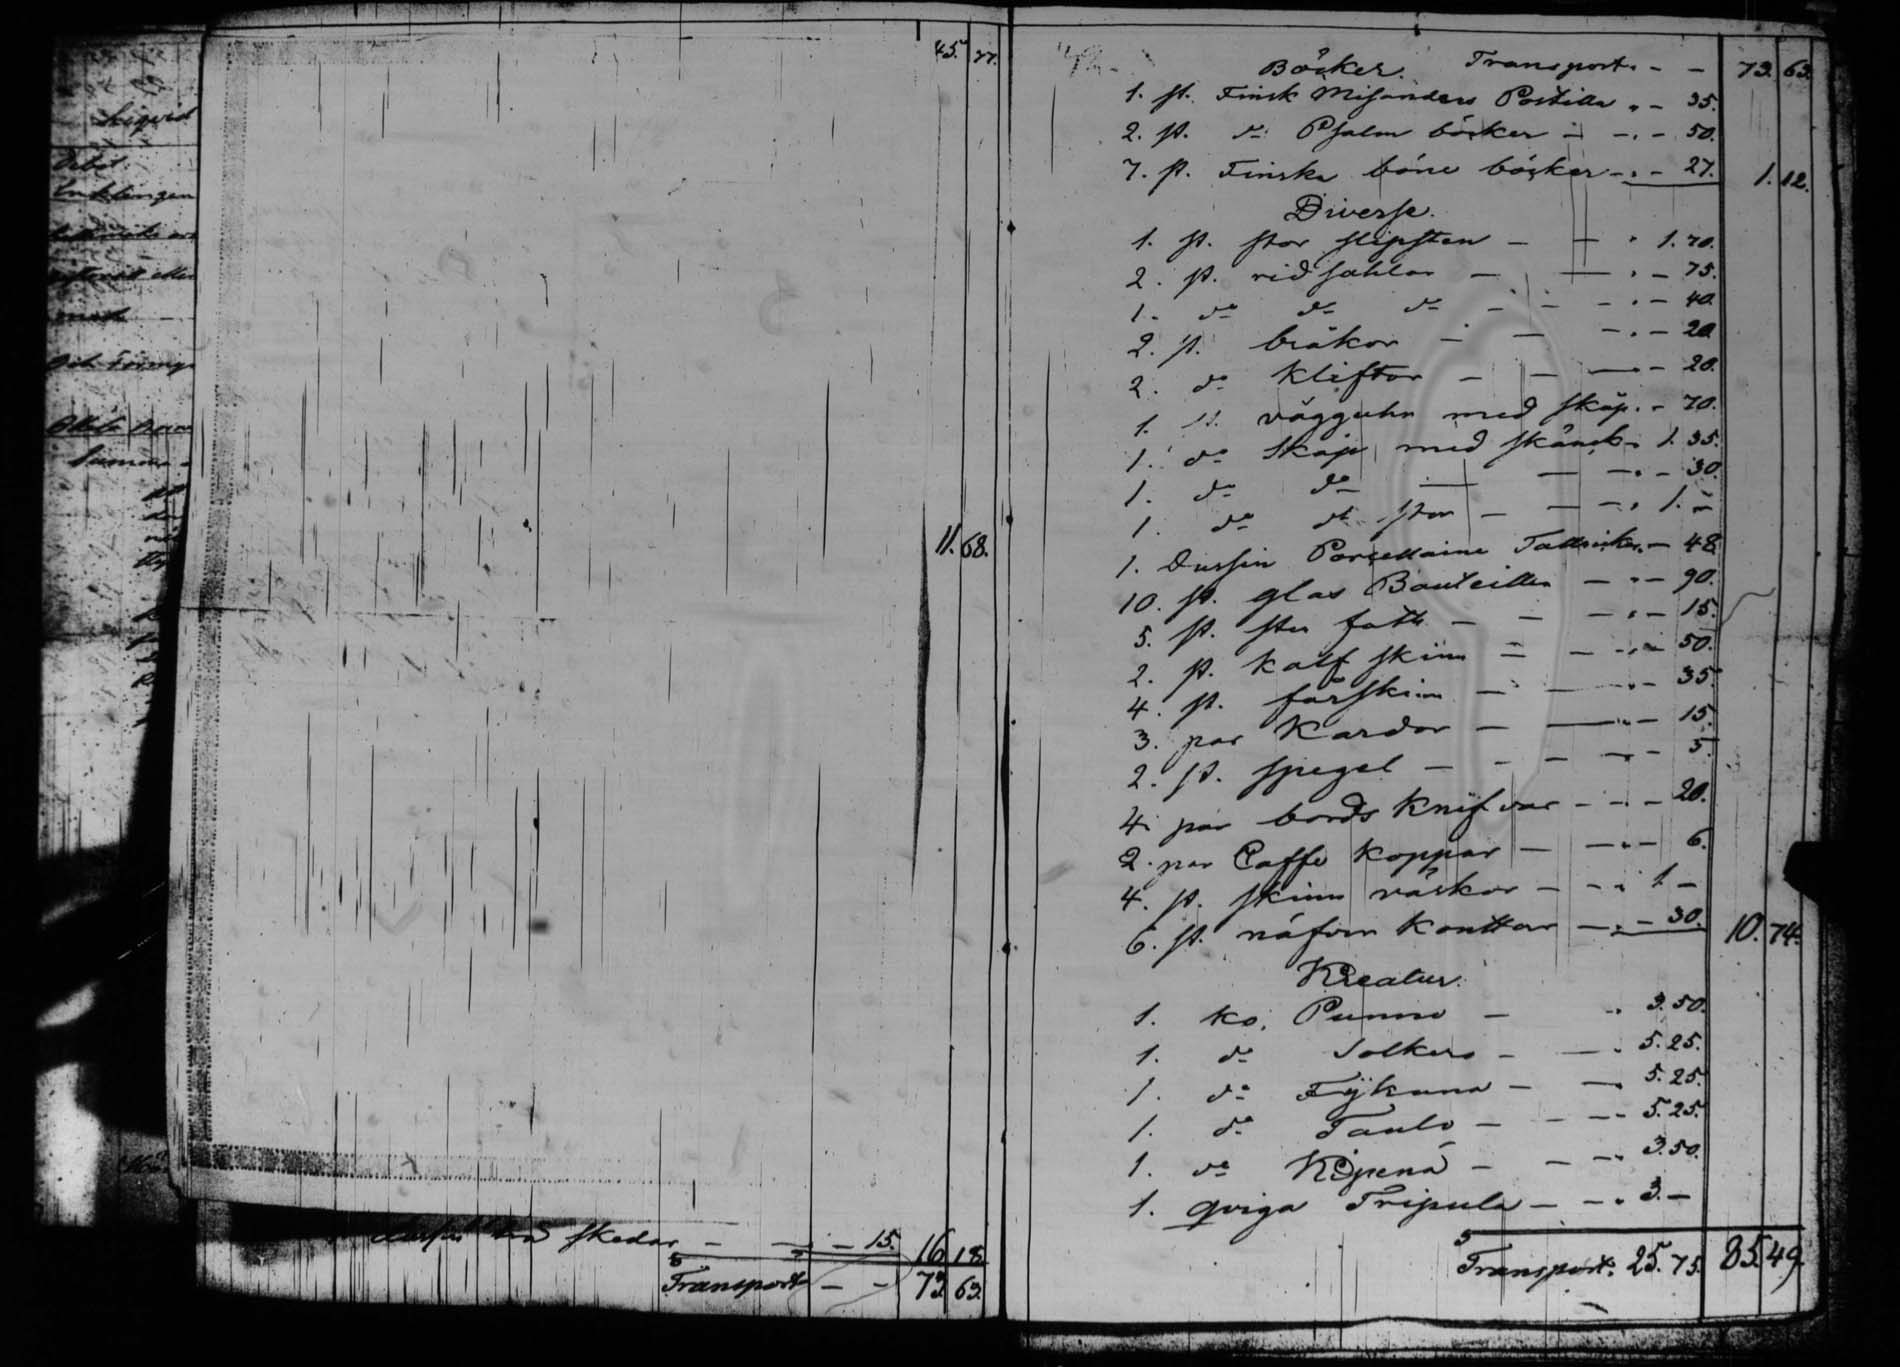 Sigrid
Debet
Enklingen
mad
Summa
45. 77.
11. 68.
Dussin Träd skedar — — — 15. 16 18.
S Transport — — 73. 63.
Böcker. Transport. — — 73. 63.
1. st. Finsk Misanders Postilla „ — 35.
2. st. do Psalm böcker — — „ — 50.
7. st. Finska böne böcker — „ — 27. 1. 12.
Diverse.
1. st. stor slipsten — — „ 1. 70.
2. st. ridsahlar — — „ — 75.
1. do do do — — — „ — 40.
2. st. bråkor — — — „ — 20.
2. do Kliftor — — — „ — 20.
1. st. vägguhr med skåp. — 70.
1. do Skåp med skänck „ 1. 35.
1. do do — — — „ — 30.
1. do do stor — — — „ 1. —
1. Dussin Porcellaine Tallrickar — 48.
10. st. glas Bouteiller — „ — 90.
5. st. sten fatt — — — „ — 15.
2. st. Kalf skinn — — „ — 50.
4. st. fårskinn — — „ — 35.
3. par Kardor — — „ — 15.
2. st. spegel — — — „ — 5.
4. par bords Knifvar — — — 20.
2. par Caffe Koppar — — „ — 6.
4. st. skinn väskor — — „ 1. —
6. st. näfver Konttar — „ — 30. 10. 74.
Kreatur.
1. Ko, Punno — „ 3. 50.
1. do Solkero — — „ 5. 25.
1. do Fÿkana — — 5. 25.
1. do Taulo — — — 5. 25.
1. do Köpenä — — — „ 3. 50.
1. qviga Tripula — — „ 3. —
S Transport. 25. 75. 85. 49.